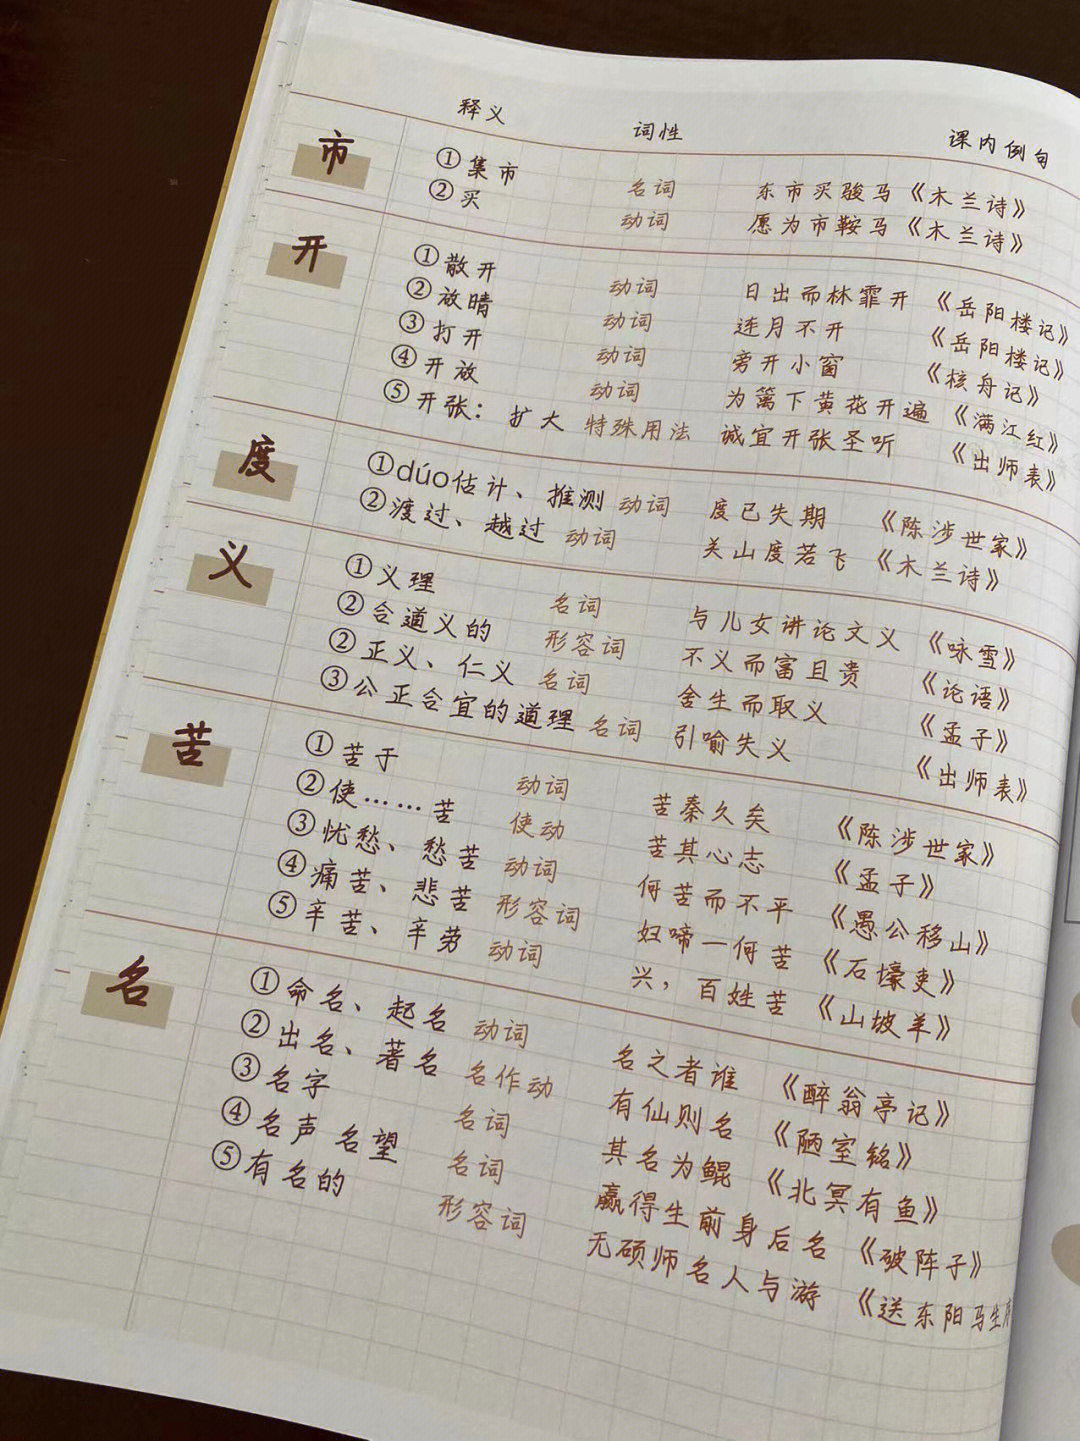 释义 词性 课内例句
市 ①集市 名词 东市买骏马《木兰诗》
②买 动词 愿为市鞍马《木兰诗》
开 ①散开 动词 日出而林霏开 《岳阳楼记》
②放晴 动词 连月不开 《岳阳楼记》
③打开 动词 旁开小窗 《核舟记》
④开放 动词 为篱下黄花开遍 《满江红》
⑤开张：扩大 特殊用法 诚宜开张圣听 《出师表》
度 ①dúo估计、推测 动词 度已失期 《陈涉世家》
②渡过、越过 动词 关山度若飞 《木兰诗》
义 ①义理 名词 与儿女讲论文义 《咏雪》
②合道义的 形容词 不义而富且贵 《论语》
②正义、仁义 名词 舍生而取义 《孟子》
③公正合宜的道理 名词 引喻失义 《出师表》
苦 ①苦于 动词 苦秦久矣 《陈涉世家》
②使……苦 使动 苦其心志 《孟子》
③忧愁、愁苦 动词 何苦而不平 《愚公移山》
④痛苦、悲苦 形容词 妇啼一何苦 《石壕吏》
⑤辛苦、辛劳 动词 兴，百姓苦 《山坡羊》
名 ①命名、起名 动词 名之者谁 《醉翁亭记》
②出名、著名 名作动 有仙则名 《陋室铭》
③名字 名词 其名为鲲 《北冥有鱼》
④名声 名望 名词 赢得生前身后名 《破阵子》
⑤有名的 形容词 无硕师名人与游 《送东阳马生